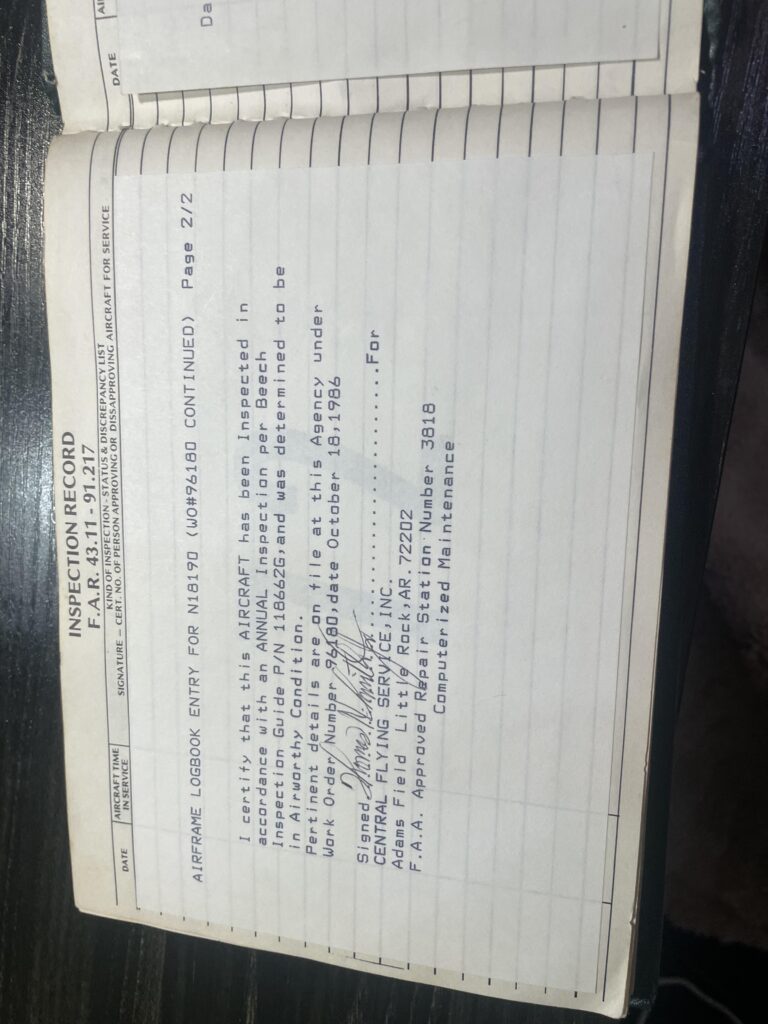 DATE
Da
INSPECTION RECORD
F.A.R. 43.11 - 91.217
KIND OF INSPECTION - STATUS & DISCREPANCY LIST
SIGNATURE — CERT. NO. OF PERSON APPROVING OR DISSAPPROVING AIRCRAFT FOR SERVICE
DATE
AIRCRAFT TIME
IN SERVICE
AIRFRAME LOGBOOK ENTRY FOR N18190 (WO#96180 CONTINUED) Page 2/2
I certify that this AIRCRAFT has been Inspected in
accordance with an ANNUAL Inspection per Beech
Inspection Guide P/N 118662G,and was determined to be
in Airworthy Condition.
Pertinent details are on file at this Agency under
Work Order Number 96180,date October 18,1986
Signed..............................For
CENTRAL FLYING SERVICE,INC.
Adams Field Little Rock,AR.72202
F.A.A. Approved Repair Station Number 3818
Computerized Maintenance